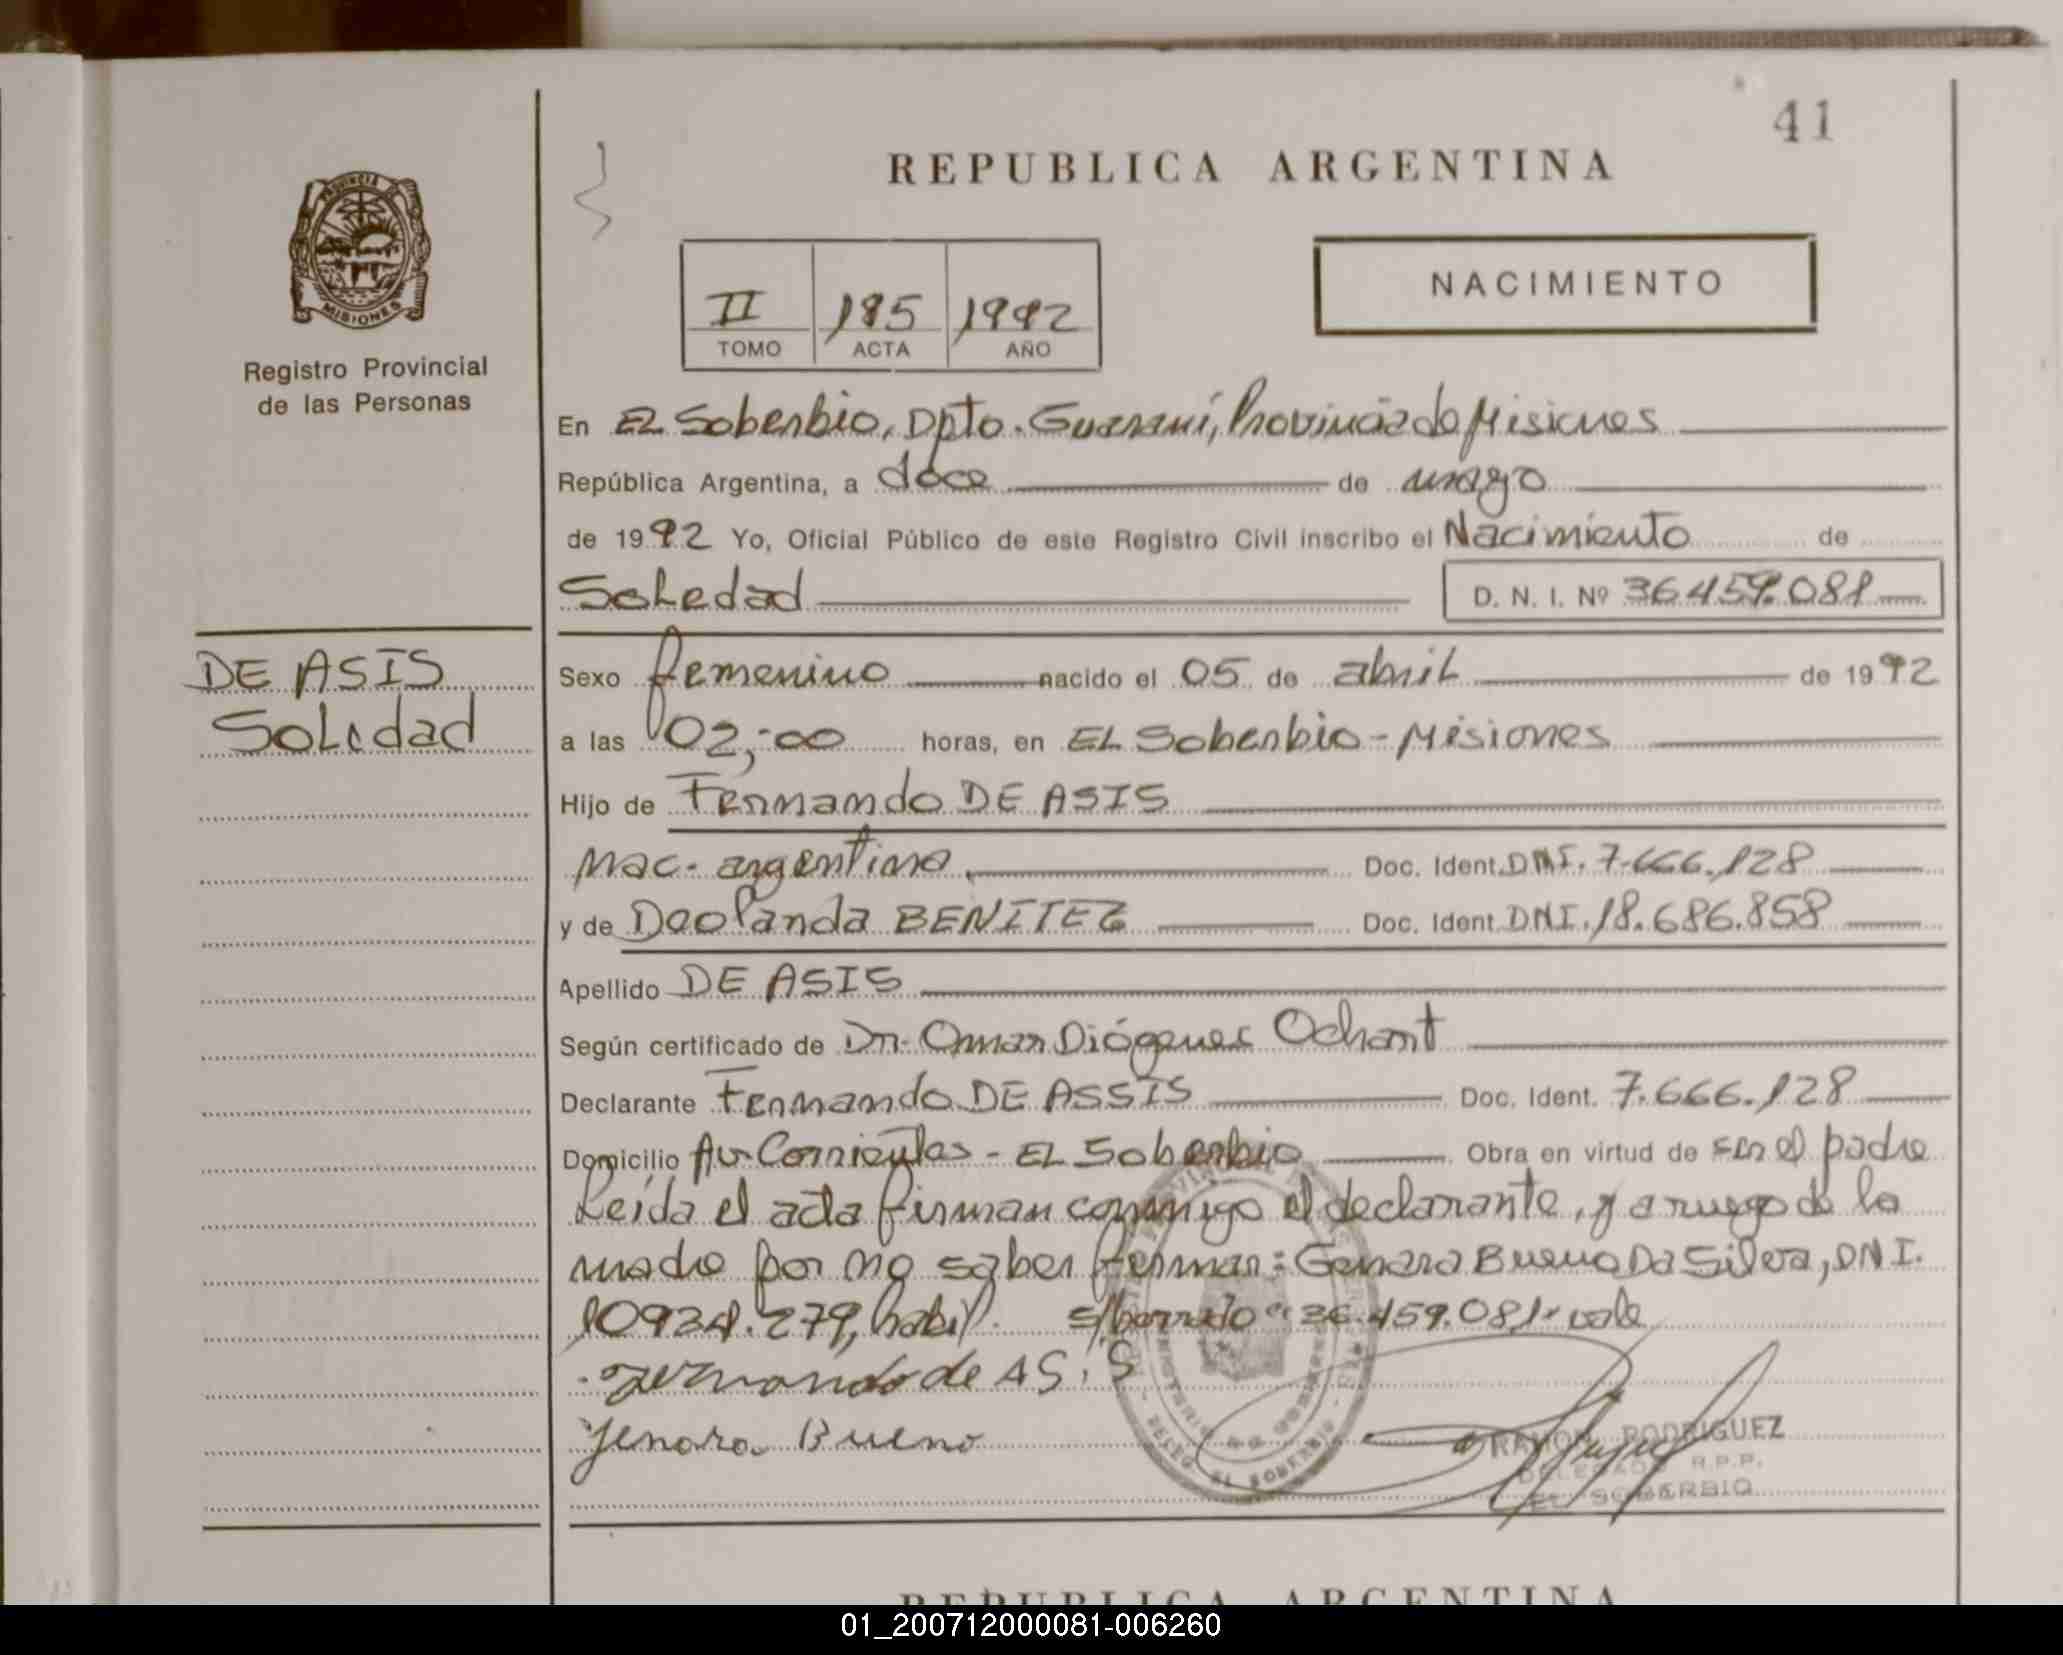 41
REPUBLICA ARGENTINA
PROVINCIA DE
MISIONES
Registro Provincial
de las Personas
NACIMIENTO
II 195 1992
TOMO ACTA AÑO
En EL Soberbio, Dpto. Guaraní, Provincia de Misiones
República Argentina, a doce de mayo
de 1992 Yo, Oficial Público de este Registro Civil inscribo el Nacimiento de
Soledad D. N. I. Nº 36.459.081
DE ASIS
Soledad
Sexo femenino nacido el 05 de abril de 1992
a las 02,-00 horas, en EL Soberbio - Misiones
Hijo de Fernando DE ASIS
Nac. argentino. Doc. Ident. DNI. 7.666.128
y de Deolanda BENITEZ Doc. Ident. DNI. 18.686.858
Apellido DE ASIS
Según certificado de Dr. Omar Diógenes Ochant
Declarante Fernando DE ASSIS Doc. Ident. 7.666.128
Domicilio Av. Corrientes - EL Soberbio Obra en virtud de ser el padre
Leída el acta firman conmigo el declarante, y a ruego de la
madre por no saber firmar: Genara Bueno Da Silva, DNI.
10.934.279, habil. s/borrado "36.459.081" vale
Fernando de ASIS
Jenara Bueno
RAMON RODRIGUEZ
DELEGADO R.P.P.
EL SOBERBIO
DELEG. EL SOBERBIO
REPUBLICA ARGENTINA
01_200712000081-006260